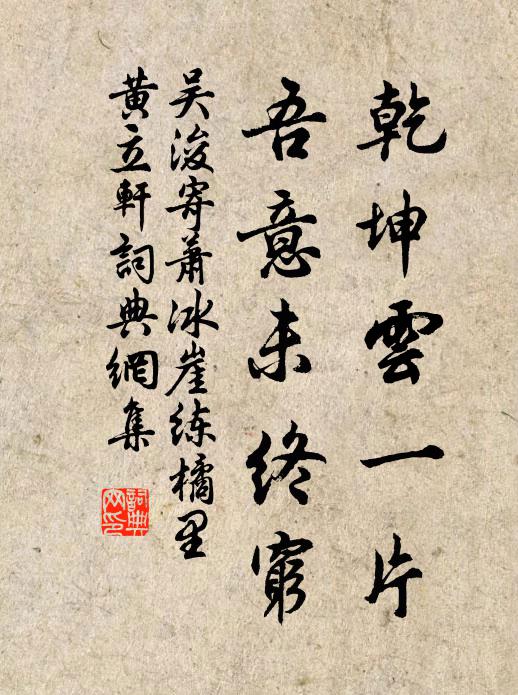 乾坤雲一片
吾意未終窮
吴浚寄蕭冰崖练橘里
黃立軒詞典網集
詞典网印